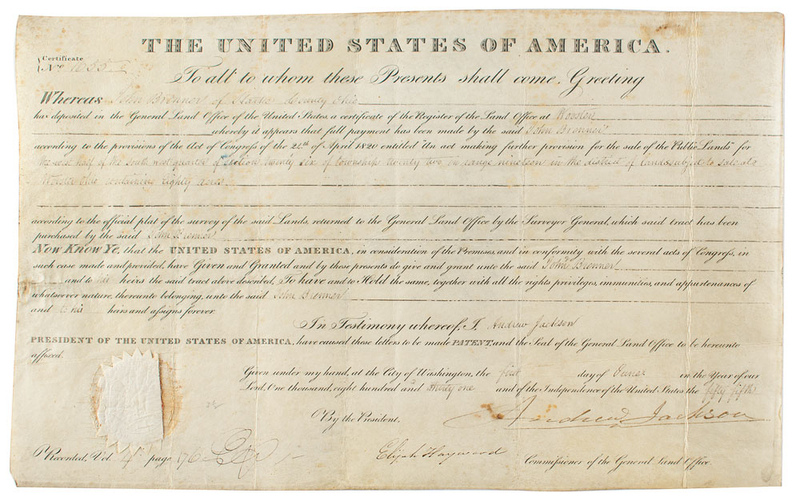 THE UNITED STATES OF AMERICA.
Certificate
No
To all to whom these Presents shall come, Greeting
Whereas John Bronner of Starke County Ohio
has deposited in the General Land Office of the United States, a certificate of the Register of the Land Office at Wooster
whereby it appears that full payment has been made by the said John Bronner
according to the provisions of the Act of Congress of the 24th of April 1820 entitled "An act making further provision for the sale of the Public Lands" for
the west half of the South west quarter of Section twenty six of township twenty two of range nineteen in the district of lands subject to sale at
Wooster Ohio containing eighty acres
according to the official plat of the survey of the said Lands, returned to the General Land Office by the Surveyor General, which said tract has been
purchased by the said John Bronner
Now Know Ye, that the UNITED STATES OF AMERICA, in consideration of the Premises, and in conformity with the several acts of Congress, in
such case made and provided, have Given and Granted and by these presents do give and grant unto the said John Bronner
and to his heirs the said tract above described, To have and to Hold the same, together with all the rights, privileges, immunities, and appurtenances of
whatsoever nature, thereunto belonging, unto the said John Bronner
and to his heirs and assigns forever
In Testimony whereof, I Andrew Jackson
PRESIDENT OF THE UNITED STATES OF AMERICA, have caused these letters to be made PATENT, and the Seal of the General Land Office to be hereunto
affixed.
Given under my hand, at the City of Washington, the first day of June in the Year of our
Lord, One thousand, eight hundred and thirty one and of the Independence of the United States the fifty fifth
By the President. Andrew Jackson
Recorded, Vol. 4 page 176 Elijah Hayward Commissioner of the General Land Office.